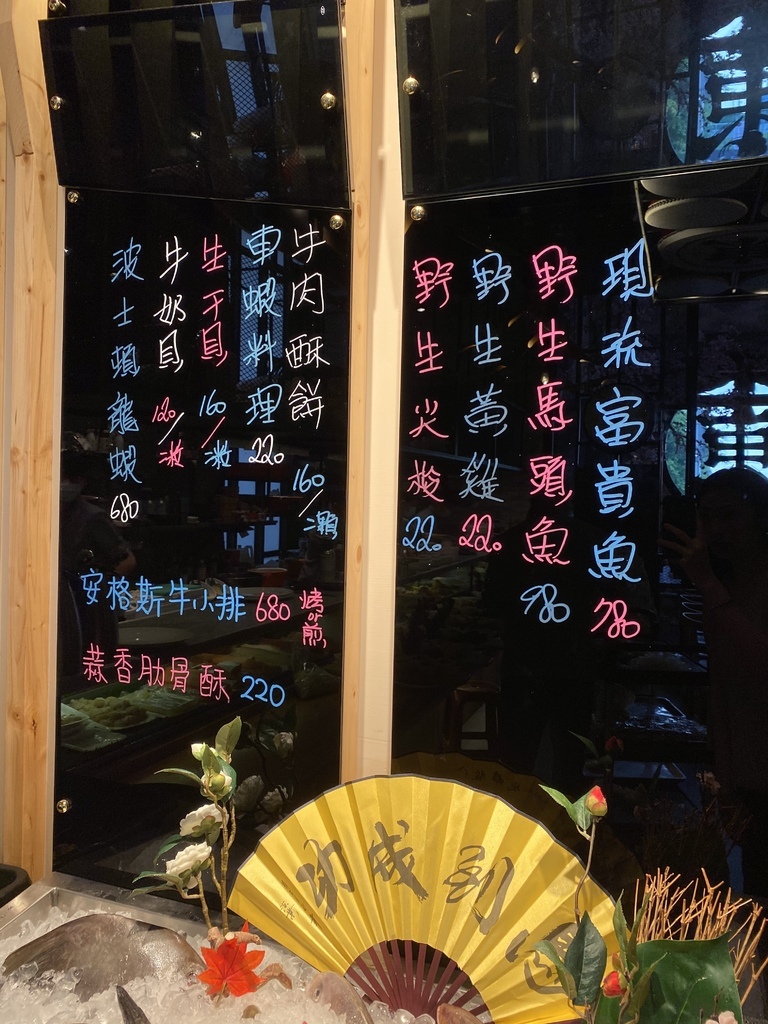 現流富貴魚 980
野生馬頭魚 980
野生黃雞 220
野生火梭 220
牛肉酥餅 160/顆
車蝦料理 220
生干貝 160/粒
牛奶貝 120/粒
波士頓龍蝦 680
安格斯牛小排 680 烤or煎
蒜香肋骨酥 220
馬到成功
東